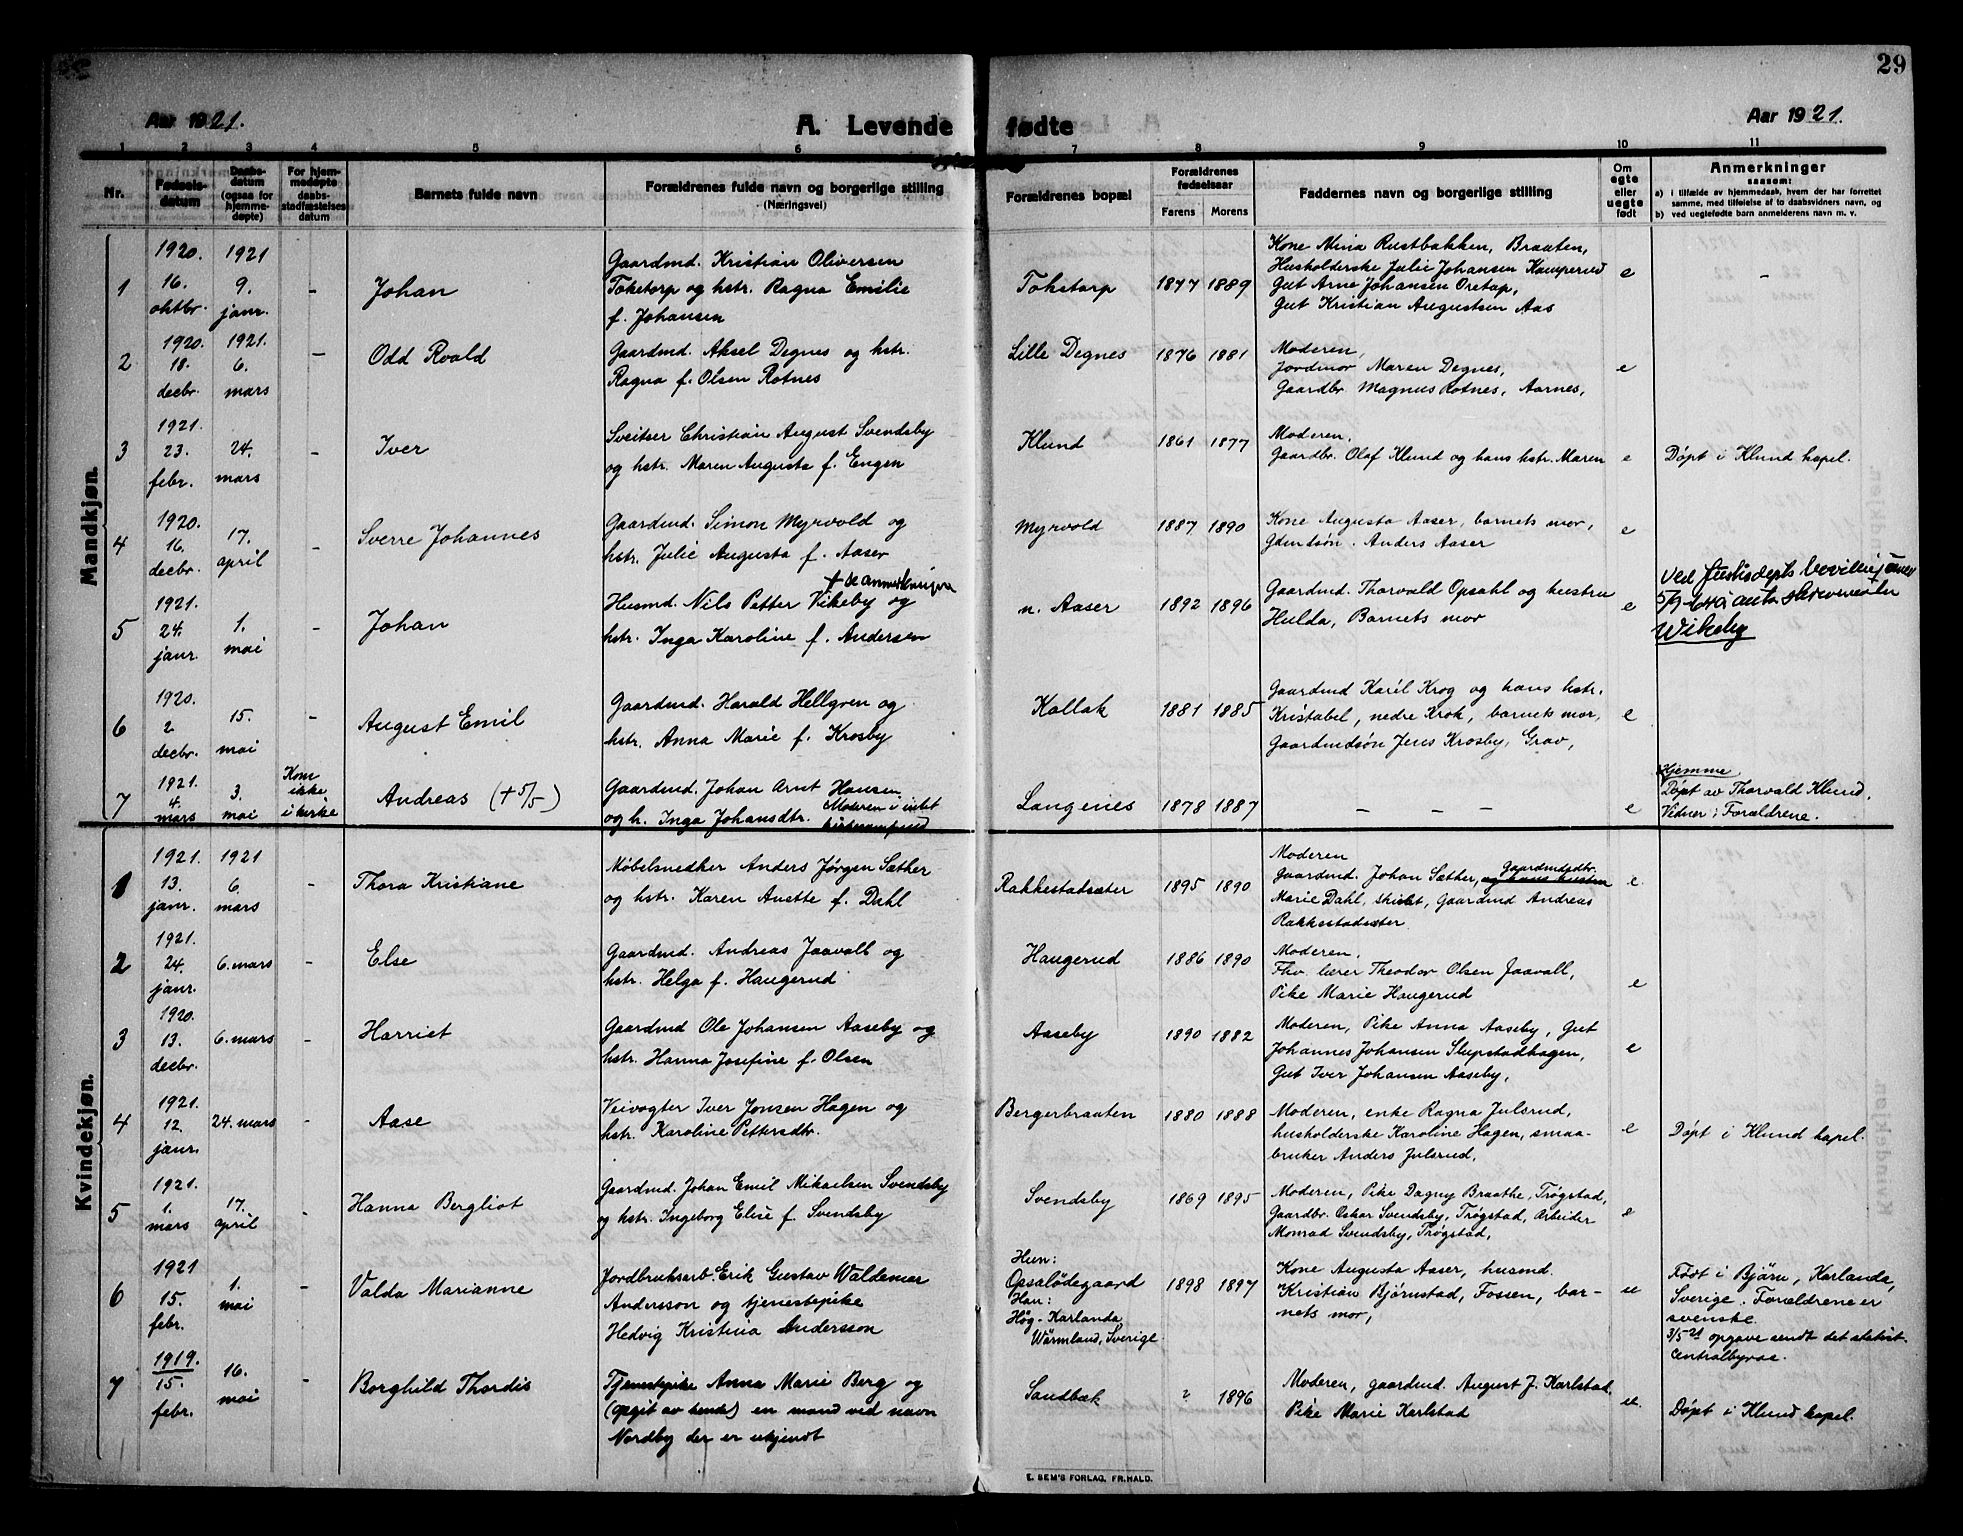 29
Aar 1921.
A. Levende fødte
Aar 1921.
1 2 3 4 5 6 7 8 9 10 11
Nr.
Fødsels-
datum
Daabs-
datum
(ogsaa for
hjemme-
døpte)
For hjem-
medøpte
daabs-
stadfæstelses
datum
Barnets fulde navn
Forældrenes fulde navn og borgerlige stilling
(Næringsvei)
Forældrenes bopæl
Forældrenes
fødselsaar
Farens Morens
Faddernes navn og borgerlige stilling
Om
egte
eller
uegte
født
Anmerkninger
saasom:
a) i tilfælde av hjemmedaab, hvem der har forrettet
samme, med tilføielse af to daabsvidners navn, og
b) ved uegtefødte barn anmelderens navn m. v.
Mandkjøn.
1
1920.
16.
oktbr.
1921
9.
janr.
-
Johan
Gaardmd. Kristian Oliversen
Toketorp og hstr. Ragna Emilie
f. Johansen
Tokstorp
1877 1889
Kone Mina Rustbakken, Braaten,
Husholderske Julie Johansen Kamperud
Gut Arne Johansen Oretop,
Gut Kristian Augustsen Aas
e
-
2
1920.
18.
decbr.
1921.
6.
mars
-
Odd Roald
Gaardmd. Aksel Degnes og hstr.
Ragna f. Olsen Rotnes
Lille Degnes
1876 1881
Moderen,
Jordmor Maren Degnes,
Gaardbr. Magnus Rotnes, Aarnes,
e
3
1921.
23.
febr.
24.
mars
-
Iver
Sveitser Christian August Svendsby
og hstr. Maren Augusta f. Engen
Klund
1861 1877
Moderen,
Gaardbr. Olaf Klund og hans hstr. Maren
e
Døpt i Klund kapel.
4
1920.
16.
decbr.
17.
april
-
Sverre Johannes
Gaardmd. Simon Myrvold og
hstr. Julie Augusta f. Aaser
Myrvold
1887 1890
Kone Augusta Aaser, barnets mor,
Gdmdsøn. Anders Aaser
e
5
1921.
24.
janr.
1.
mai
-
Johan
+ se anmerkningen
Husmd. Nils Petter Vikeby og
hstr. Inga Karoline f. Andersen
n. Aaser
1892 1896
Gaardmd. Thorvald Opsahl og hustru
Hulda, Barnets mor
e
Ved Justisdepts bevilling
5/9
Wikeby
6
1920.
2
decbr.
15.
mai
-
August Emil
Gaardmd. Harald Hellgren og
hstr. Anna Marie f. Krosby
Kallak
1881 1885
Gaardmd Karel Krog og hans hstr.
Kristabel, nedre Krok, barnets mor,
Gaardmdsøn Jens Krosby, Grav,
e
7
1921.
4.
mars
3.
mai
Kom
ikke
i kirke
Andreas (+ 5/5)
Gaardmd. Johan Arnt Hansen
og h. Inga Johansdtr.
Moderen i intet
kirkesamfund
Langenes
1878 1887
- - -
e
Hjemme
Døpt av Thorvald Klund.
Vidner: Forældrene.
Kvindekjøn.
1
1921.
13.
janr.
1921
6.
mars
-
Thora Kristiane
Møbelsnedker Anders Jørgen Sæther
og hstr. Karen Anette f. Dahl
Rakkestadsæter
1895 1890
Moderen
Gaardmd. Johan Sæther, og hans hustru
Gaardmdsdtr.
Marie Dahl, Gaardmd Andreas
Rakkestadsæter
e.
2
1921.
24.
janr.
6. mars
-
Else
Gaardmd. Andreas Jaavall og
hstr. Helga f. Haugerud
Haugerud
1886 1890
Moderen,
Fhv. lærer Theodor Olsen Jaavall,
Pike Marie Haugerud
e
3
1920.
13.
decbr.
6. mars
-
Harriet
Gaardmd Ole Johansen Aaseby og
hstr. Hanna Josefine f. Olsen
Aaseby
1890 1882
Moderen, Pike Anna Aaseby, Gut
Johannes Johansen Slupstadhagen,
Gut Iver Johansen Aaseby,
e
4
1921.
12.
janr.
24. mars
-
Aase
Veivogter Iver Jonsen Hagen og
hstr. Karoline Pettersdtr.
Bergerbraaten
1880 1888
Moderen, enke Ragna Julsrud,
husholderske Karoline Hagen, smaa-
bruker Anders Julsrud,
e
Døpt i Klund kapel.
5
1921.
1.
mars
17.
april
-
Hanna Bergliot
Gaardmd. Johan Emil Mikaelsen Svendsby
og hstr. Ingeborg Elise f. Svendsby
Svendsby
1869 1895
Moderen, Pike Dagny Braathe, Trøgstad,
Gaardbr. Oskar Svendsby, Trøgstad, Arbeider
Monrad Svendsby, Trøgstad,
e
6
1921
15.
febr.
1.
mai
-
Valda Marianne
Jordbruksarb. Erik Gustav Waldemar
Andersson og tjenestepike
Hedvig Kristina Andersson
Hun:
Opsalødegaard
Han:
Hög-Karlanda
Wärmland, Sverige.
1898 1897
Kone Augusta Aaser, husmd.
Kristian Bjørnstad, Fossen, bar-
nets mor,
ue
Født i Bjärn, Karlanda,
Sverige. Forældrene er
svenske.
3/5 21 opgave sendt det statist.
Centralbyraa.
7
1919.
15.
febr.
16.
mai
-
Borghild Thordis
Tjenestepike Anna Marie Berg og
(opgit av hende) en mand ved navn
Nordby der er ukjendt
Sandbæk
? 1896
Moderen, gaardmd. August J. Karlstad,
Pike Marie Karlstad
ue.
Døpt i Klund kapel.
E. SEM'S FORLAG, FR.HALD.